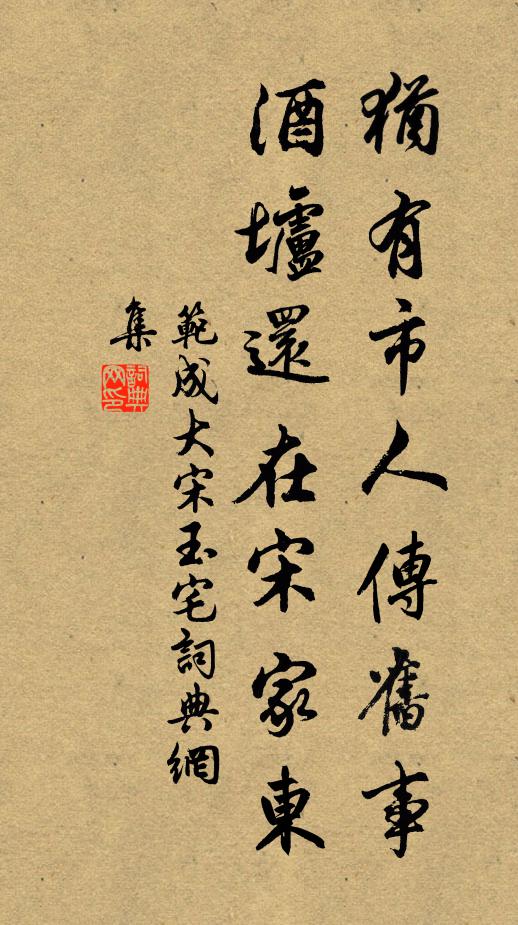 猶有市人傳舊事
酒壚還在宋家東
範成大宋玉宅詞典網
集
詞典網印